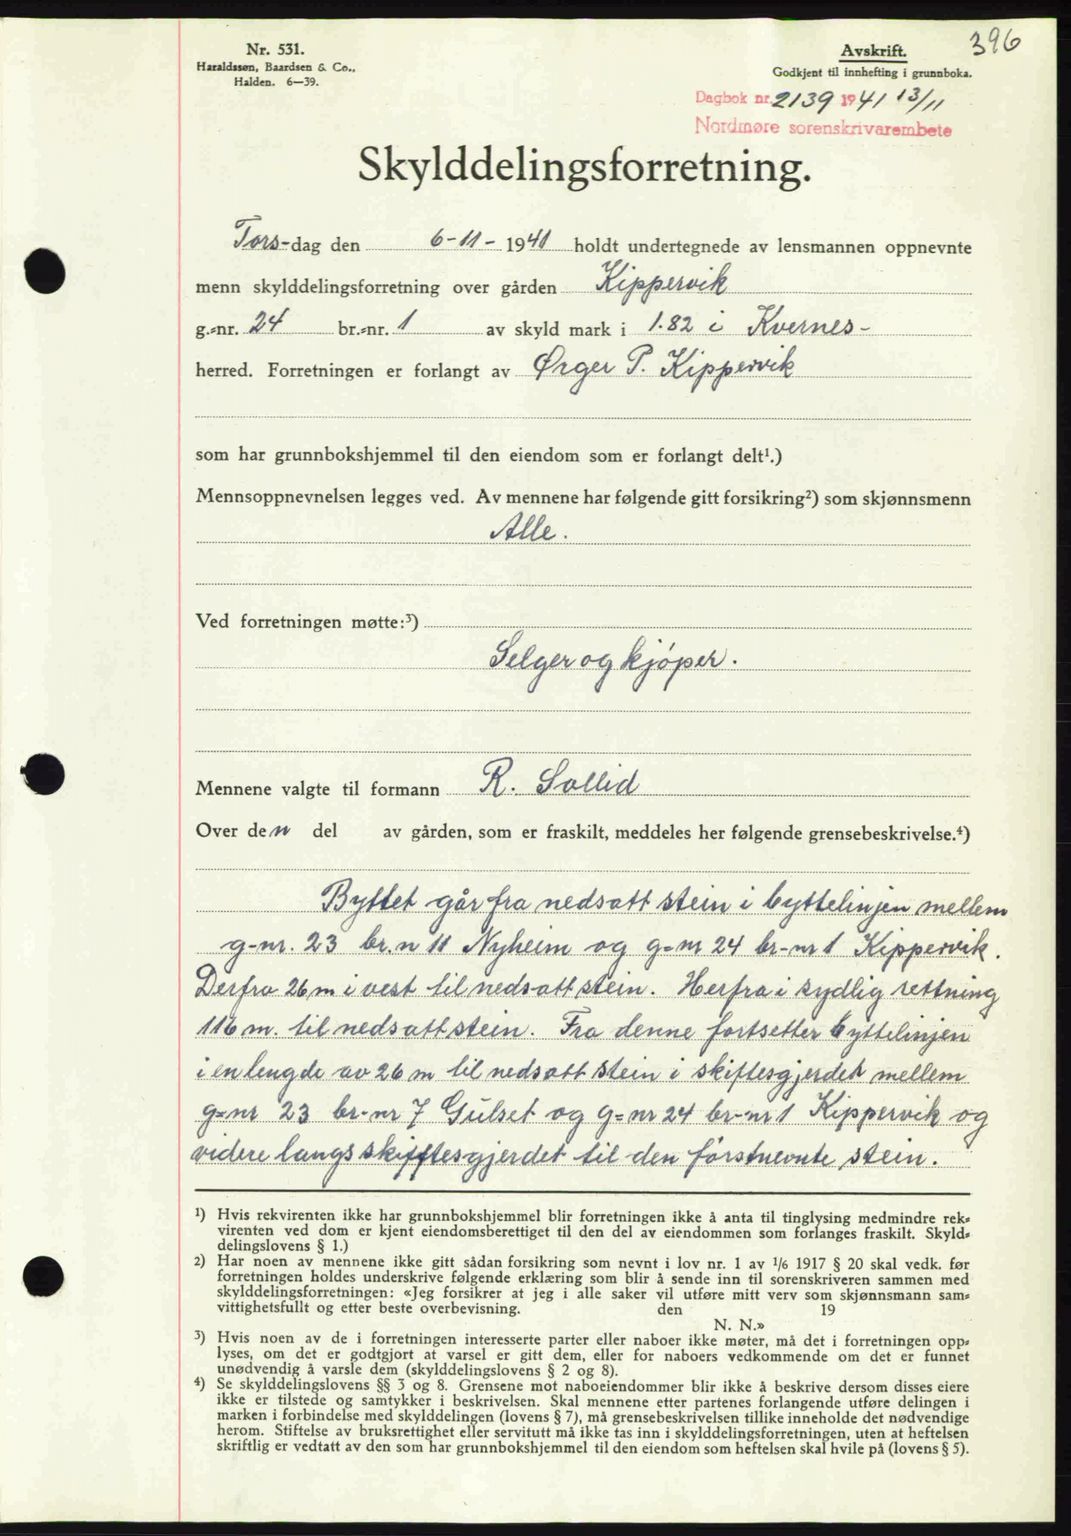 396
Nr. 531.
Haraldssøn, Baardsen & Co.,
Halden. 6—39.
Avskrift.
Godkjent til innhefting i grunnboka.
Dagbok nr. 2139 1941 13/11
Nordmøre sorenskrivarembete
Skylddelingsforretning.
Tors-dag den 6-11- 1941 holdt undertegnede av lensmannen oppnevnte
menn skylddelingsforretning over gården Kippervik
g.=nr. 24 br.=nr. 1 av skyld mark i 1.82 i Kvernes-
herred. Forretningen er forlangt av Ørger P. Kippervik
som har grunnbokshjemmel til den eiendom som er forlangt delt¹.)
Mennsoppnevnelsen legges ved. Av mennene har følgende gitt forsikring²) som skjønnsmenn
Alle.
Ved forretningen møtte:³)
Selger og kjøper.
Mennene valgte til formann R. Sollid
Over den del av gården, som er fraskilt, meddeles her følgende grensebeskrivelse.⁴)
Byttet går fra nedsatt stein i byttelinjen mellem
g-nr. 23 br.n 11 Nyheim og g=nr 24 br-nr 1 Kippervik.
Derfra 26 m i vest til nedsatt stein. Herfra i sydlig rettning
116 m. til nedsatt stein. Fra denne fortsetter byttelinjen
i en lengde av 26 m til nedsatt stein i skiftesgjerdet mellem
g=nr 23 br-nr 7 Gulset og g=nr 24 br-nr 1 Kippervik og
videre langs skifftesgjerdet til den førstnevnte stein.
¹) Hvis rekvirenten ikke har grunnbokshjemmel blir forretningen ikke å anta til tinglysing medmindre rek=
virenten ved dom er kjent eiendomsberettiget til den del av eiendommen som forlanges fraskilt. Skyld=
delingslovens § 1.)
²) Har noen av mennene ikke gitt sådan forsikring som nevnt i lov nr. 1 av 1/6 1917 § 20 skal vedk. før
forretningen holdes underskrive følgende erklæring som blir å sende inn til sorenskriveren sammen med
skylddelingsforretningen: «Jeg forsikrer at jeg i alle saker vil utføre mitt verv som skjønnsmann sam=
vittighetsfullt og etter beste overbevisning. den 19
N. N.»
³) Hvis noen av de i forretningen interesserte parter eller naboer ikke møter, må det i forretningen opp=
lyses, om det er godtgjort at varsel er gitt dem, eller for naboers vedkommende om det er funnet
unødvendig å varsle dem (skylddelingslovens § 2 og 8).
⁴) Se skylddelingslovens §§ 3 og 8. Grensene mot naboeiendommer blir ikke å beskrive dersom disses eiere
ikke er tilstede og samtykker i beskrivelsen. Skal mennene etter partenes forlangende utføre delingen i
marken i forbindelse med skylddelingen (lovens § 7), må grensebeskrivelsen tillike inneholde det nødvendige
herom. Stiftelse av bruksrettighet eller servitutt må ikke tas inn i skylddelingsforretningen, uten at heftelsen
skriftlig er vedtatt av den som har grunnbokshjemmel til den eiendom som heftelsen skal hvile på (lovens § 5).